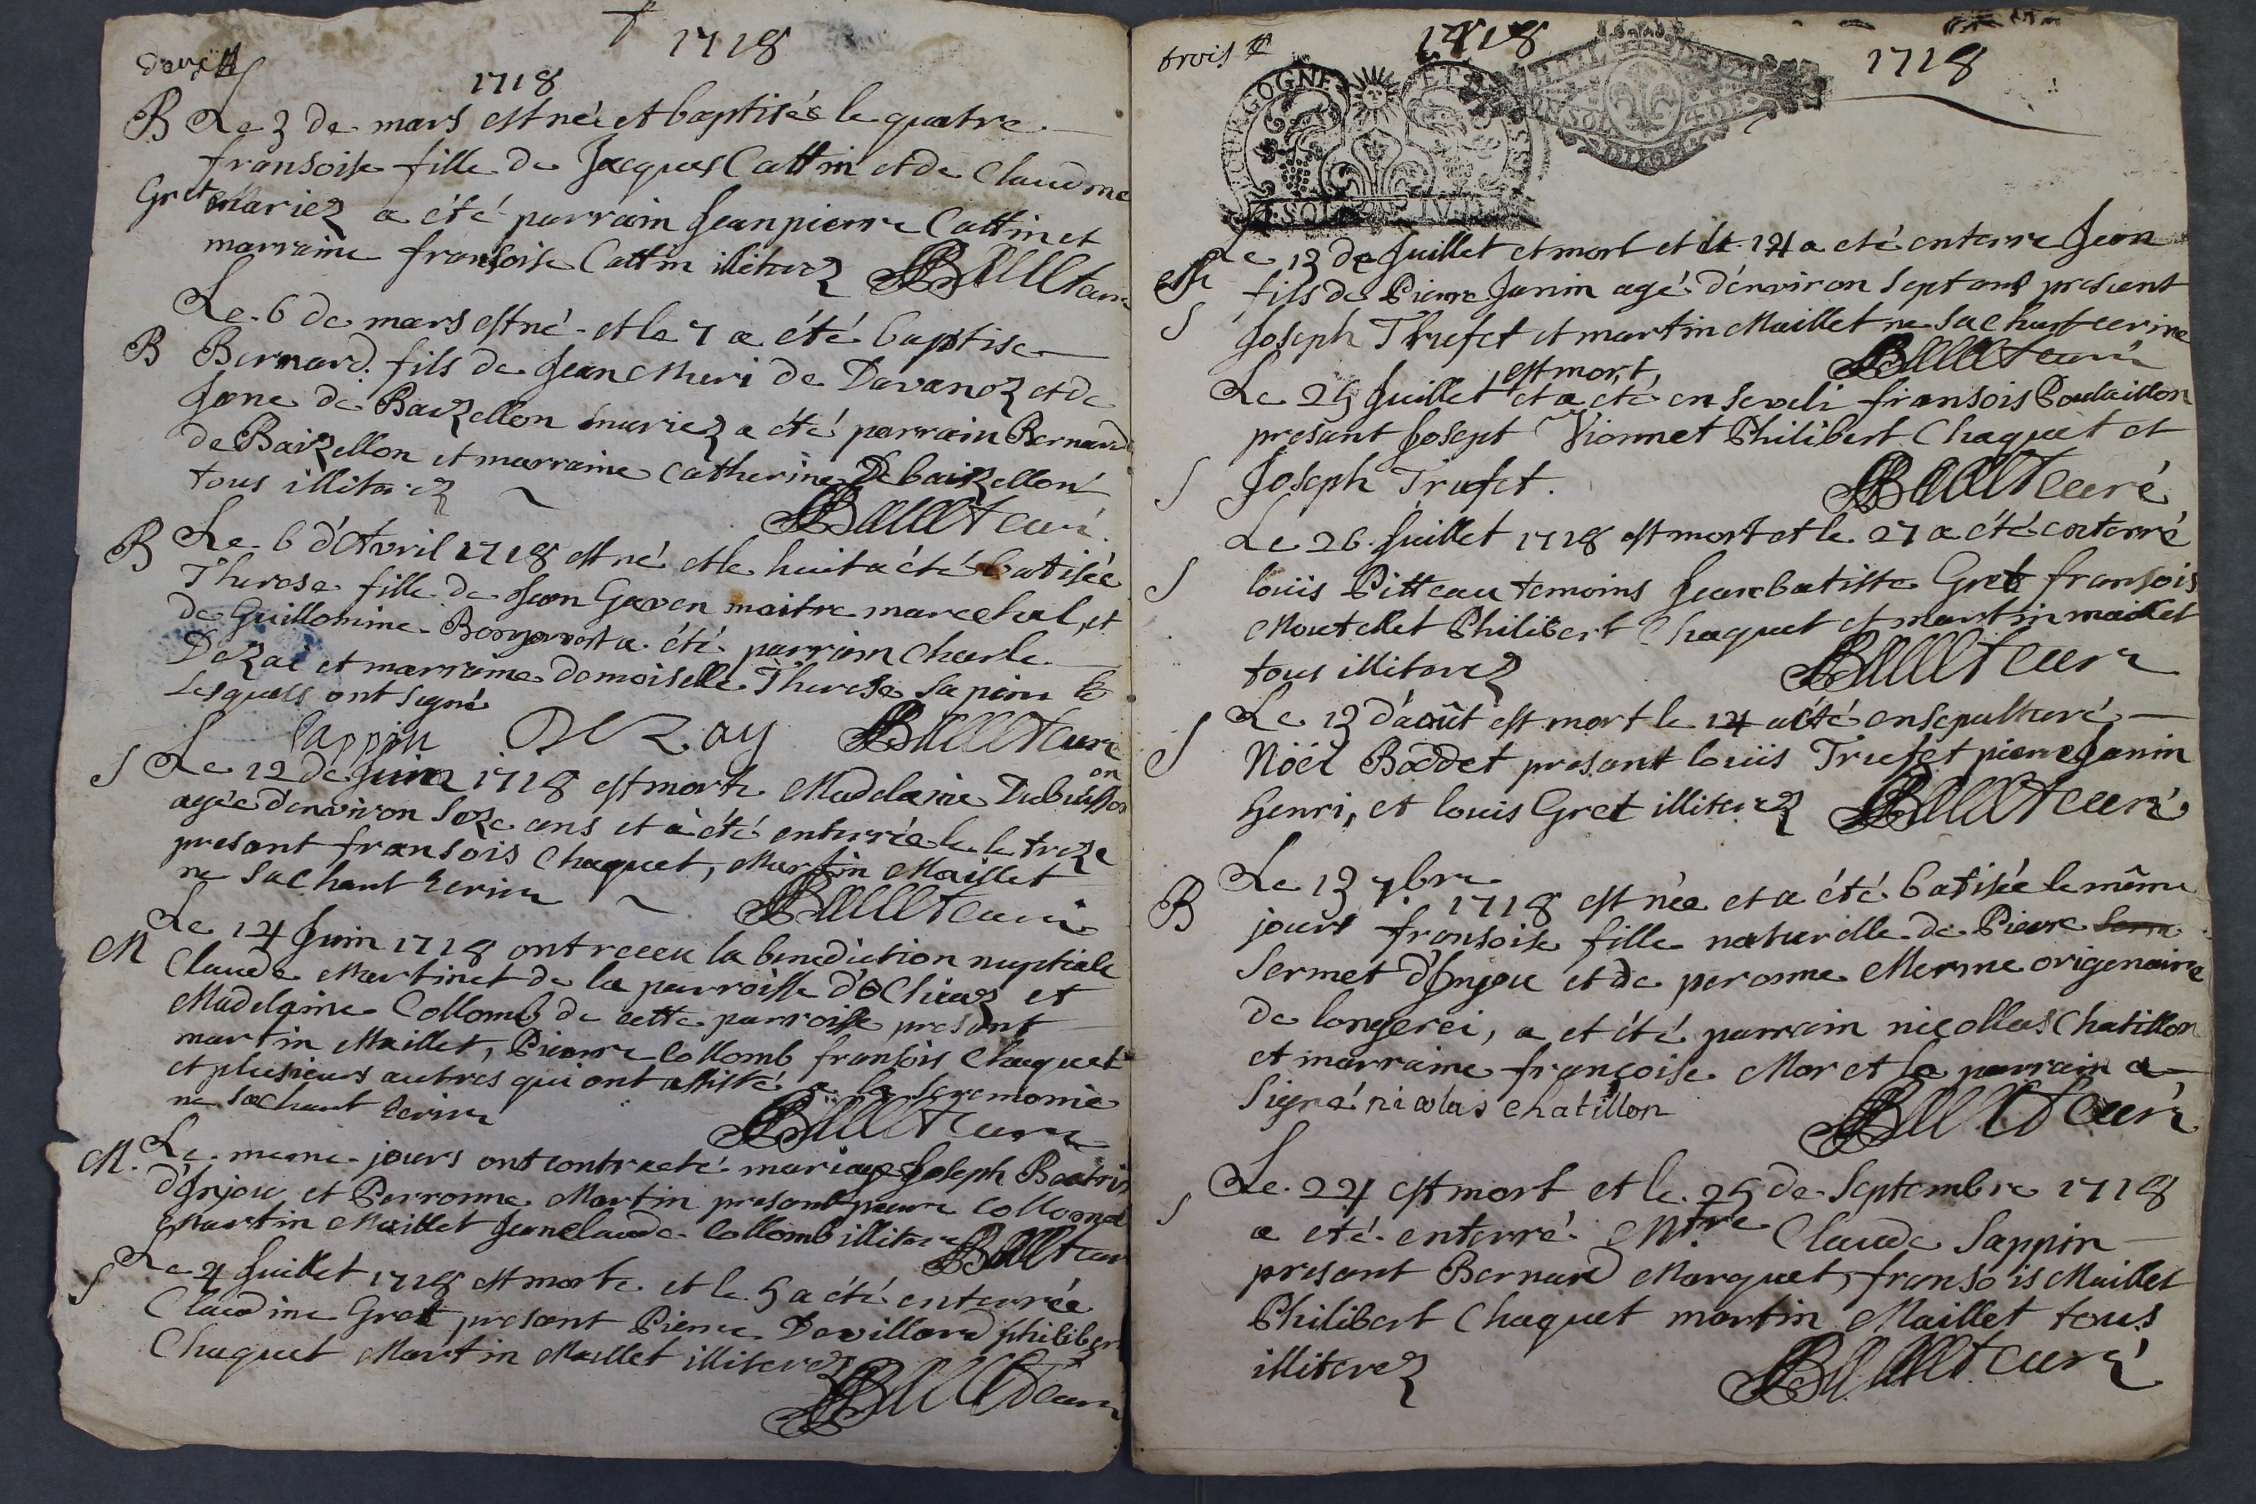 deux
1718
1718
B Le 3 de mars est née et baptisée le quatre
fransoise fille de Jacques Cattin et de Claudine
Gret Mariez a été parrain Jeanpierre Cattin et
marraine fransoise Cattin illiterez Ballet curé
Le 6 de mars est né et le 7 a été baptise
B Bernard fils de Jean Meri de Davanoz et de
Jane de Baizellon mariez a été parrain Bernard
de Baizellon et marraine Catherine De baizellon
tous illiterez Ballet curé
B Le 6 d'Avril 1718 est né et le huit a été batisée
Therese fille de Jean Gaven maitre marechal, et
de Guillomine a été parrain Charle
Dezai et marraine demoiselle Therese Sapin
Lesquels ont signé
Sappin Dezay Ballet curé
S Le 12 de Juin 1718 est morte Madelaine Dubuisson
agée d'environ soze ans et a été enterrée le le treze
presant fransois Chaquet, Martin Maillet
ne sachant ecrire Ballet curé
Le 14 Juin 1718 ont receu la benediction nuptiale
M Claude Martinet de la parroisse d'Ochiaz et
Madelaine Collomb de cette parroisse, presant
martin Maillet, Pierre Collomb fransois Chaquet
et plusieurs autres qui ont assisté a la seremonie
ne sachant ecrire Ballet curé
M. Le meme jours ont contracté mariage Joseph Beatrix
d'Injou et Perronne Martin presant pierre Collomb
Martin Maillet Jeanclaude Collomb illiterez Ballet cur
S Le 4 Juillet 1718 est morte et le 5 a été enterrée
Claudine Gret, presant Pierre Devillard philibert
Chaquet Martin Maillet illiterez
Ballet curé
trois
1718
1718
BOURGOGNE ET BRESSE
Le 13 de Juillet et mort et le 14 a eté enterre Jean
fils de Pierre Janin agé d'environ sept ans present
S Joseph Trufet et martin Maillet ne sachant ecrire
est mort Ballet curé
Le 25 Juillet et a eté enseveli fransois Poulaillon
presant Josept Vionnet Philibert Chaquet et
S Joseph Trufet. Ballet curé
Le 26 Juillet 1718 est mort et le 27 a été enterré
S louis Pitteau temoins Jeanbatiste Gret fransois
Moutellet Philibert Chaquet et martin maillet
tous illiterez Ballet curé
Le 13 d'août est mort le 14 a été ensepulturé
S Nöel Bodet presant louis Trufet pierre Janin
henri, et louis Gret illiterez Ballet curé
Le 13 7.bre 1718 est née et a été batisée le même
B jours fransoise fille naturelle de Pierre
Sermet d'Injou et de peronne Merme origenaire
de longerei, a et été parrain nicollas Chatillon
et marraine françoise Moret le parrain a
signé nicolas chatillon Ballet curé
S Le 24 est mort et le 25 de Septembre 1718
a eté enterré Mtre Claude Sappin
presant Bernard Marquet, fransois Maillet
Philibert Chaquet martin Maillet tous
illiterez Ballet curé